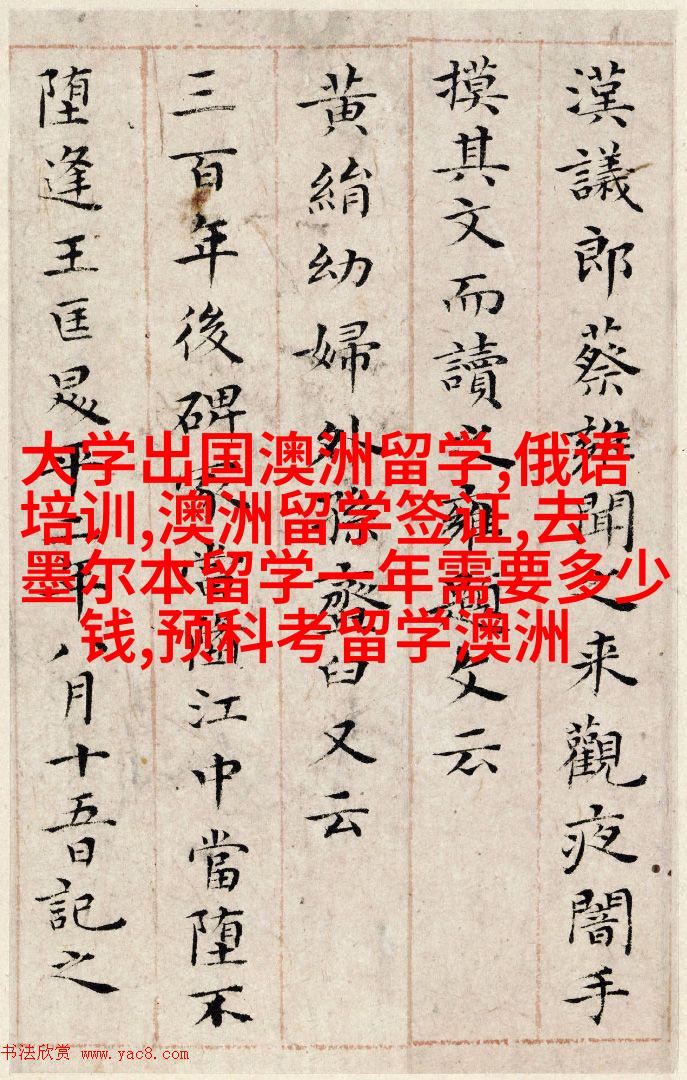 漢議郎蔡雍聞之来觀夜闇手
摸其文而讀之雍題文云
黃絹幼婦外孫齏臼又云
三百年後碑冢當墮江中當堕不
堕逢王匡昇平二年八月十五日記之
大学出国澳洲留学,俄语
培训,澳洲留学签证,去
墨尔本留学一年需要多少
钱,预科考留学澳洲
书法欣赏 www.yac8.com